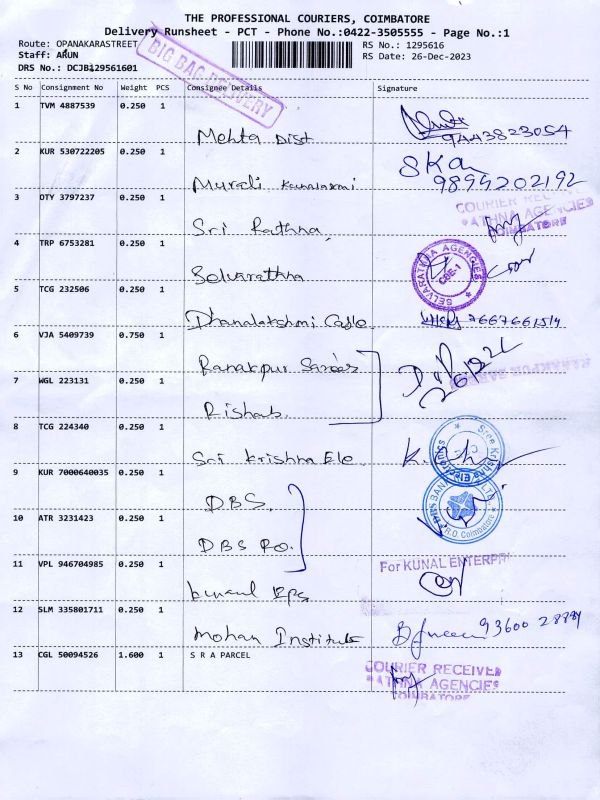 THE PROFESSIONAL COURIERS, COIMBATORE
Delivery Runsheet - PCT - Phone No.:0422-3505555 - Page No.:1
Route: OPANAKARASTREET
Staff: ARUN
DRS No.: DCJB129561601
BIG BAG DELIVERY
RS No.: 1295616
RS Date: 26-Dec-2023
S No Consignment No Weight PCS Consignee Details Signature
1 TVM 4887539 0.250 1
Mehta Dist 9443823054
2 KUR 530722205 0.250 1
Murali SKA 9894202192
3 OTY 3797237 0.250 1
Sri Rathna
COURIER REC
RATHNA AGENCIES
COIMBATORE
4 TRP 6753281 0.250 1
Selvarathna
SELVARATHNA AGENCIES
CBE-1
5 TCG 232506 0.250 1
Dhanalakshmi 7667661514
6 VJA 5409739 0.750 1
Ranakpur Sarees
RANAKPUR SAREES
7 WGL 223131 0.250 1
Rishab
8 TCG 224340 0.250 1
Sri Krishna Ele
Sree Krishna Electronics
9 KUR 7000640035 0.250 1
DBS.
DBS BANK LTD
R.O. Coimbatore
10 ATR 3231423 0.250 1
DBS RO.
11 VPL 946704985 0.250 1
For KUNAL ENTERPRI
Kunal Eps
12 SLM 335801711 0.250 1
Mohan Institute 93600 28884
13 CGL 50094526 1.600 1 S R A PARCEL
COURIER RECEIVED
RATHNA AGENCIES
COIMBATORE